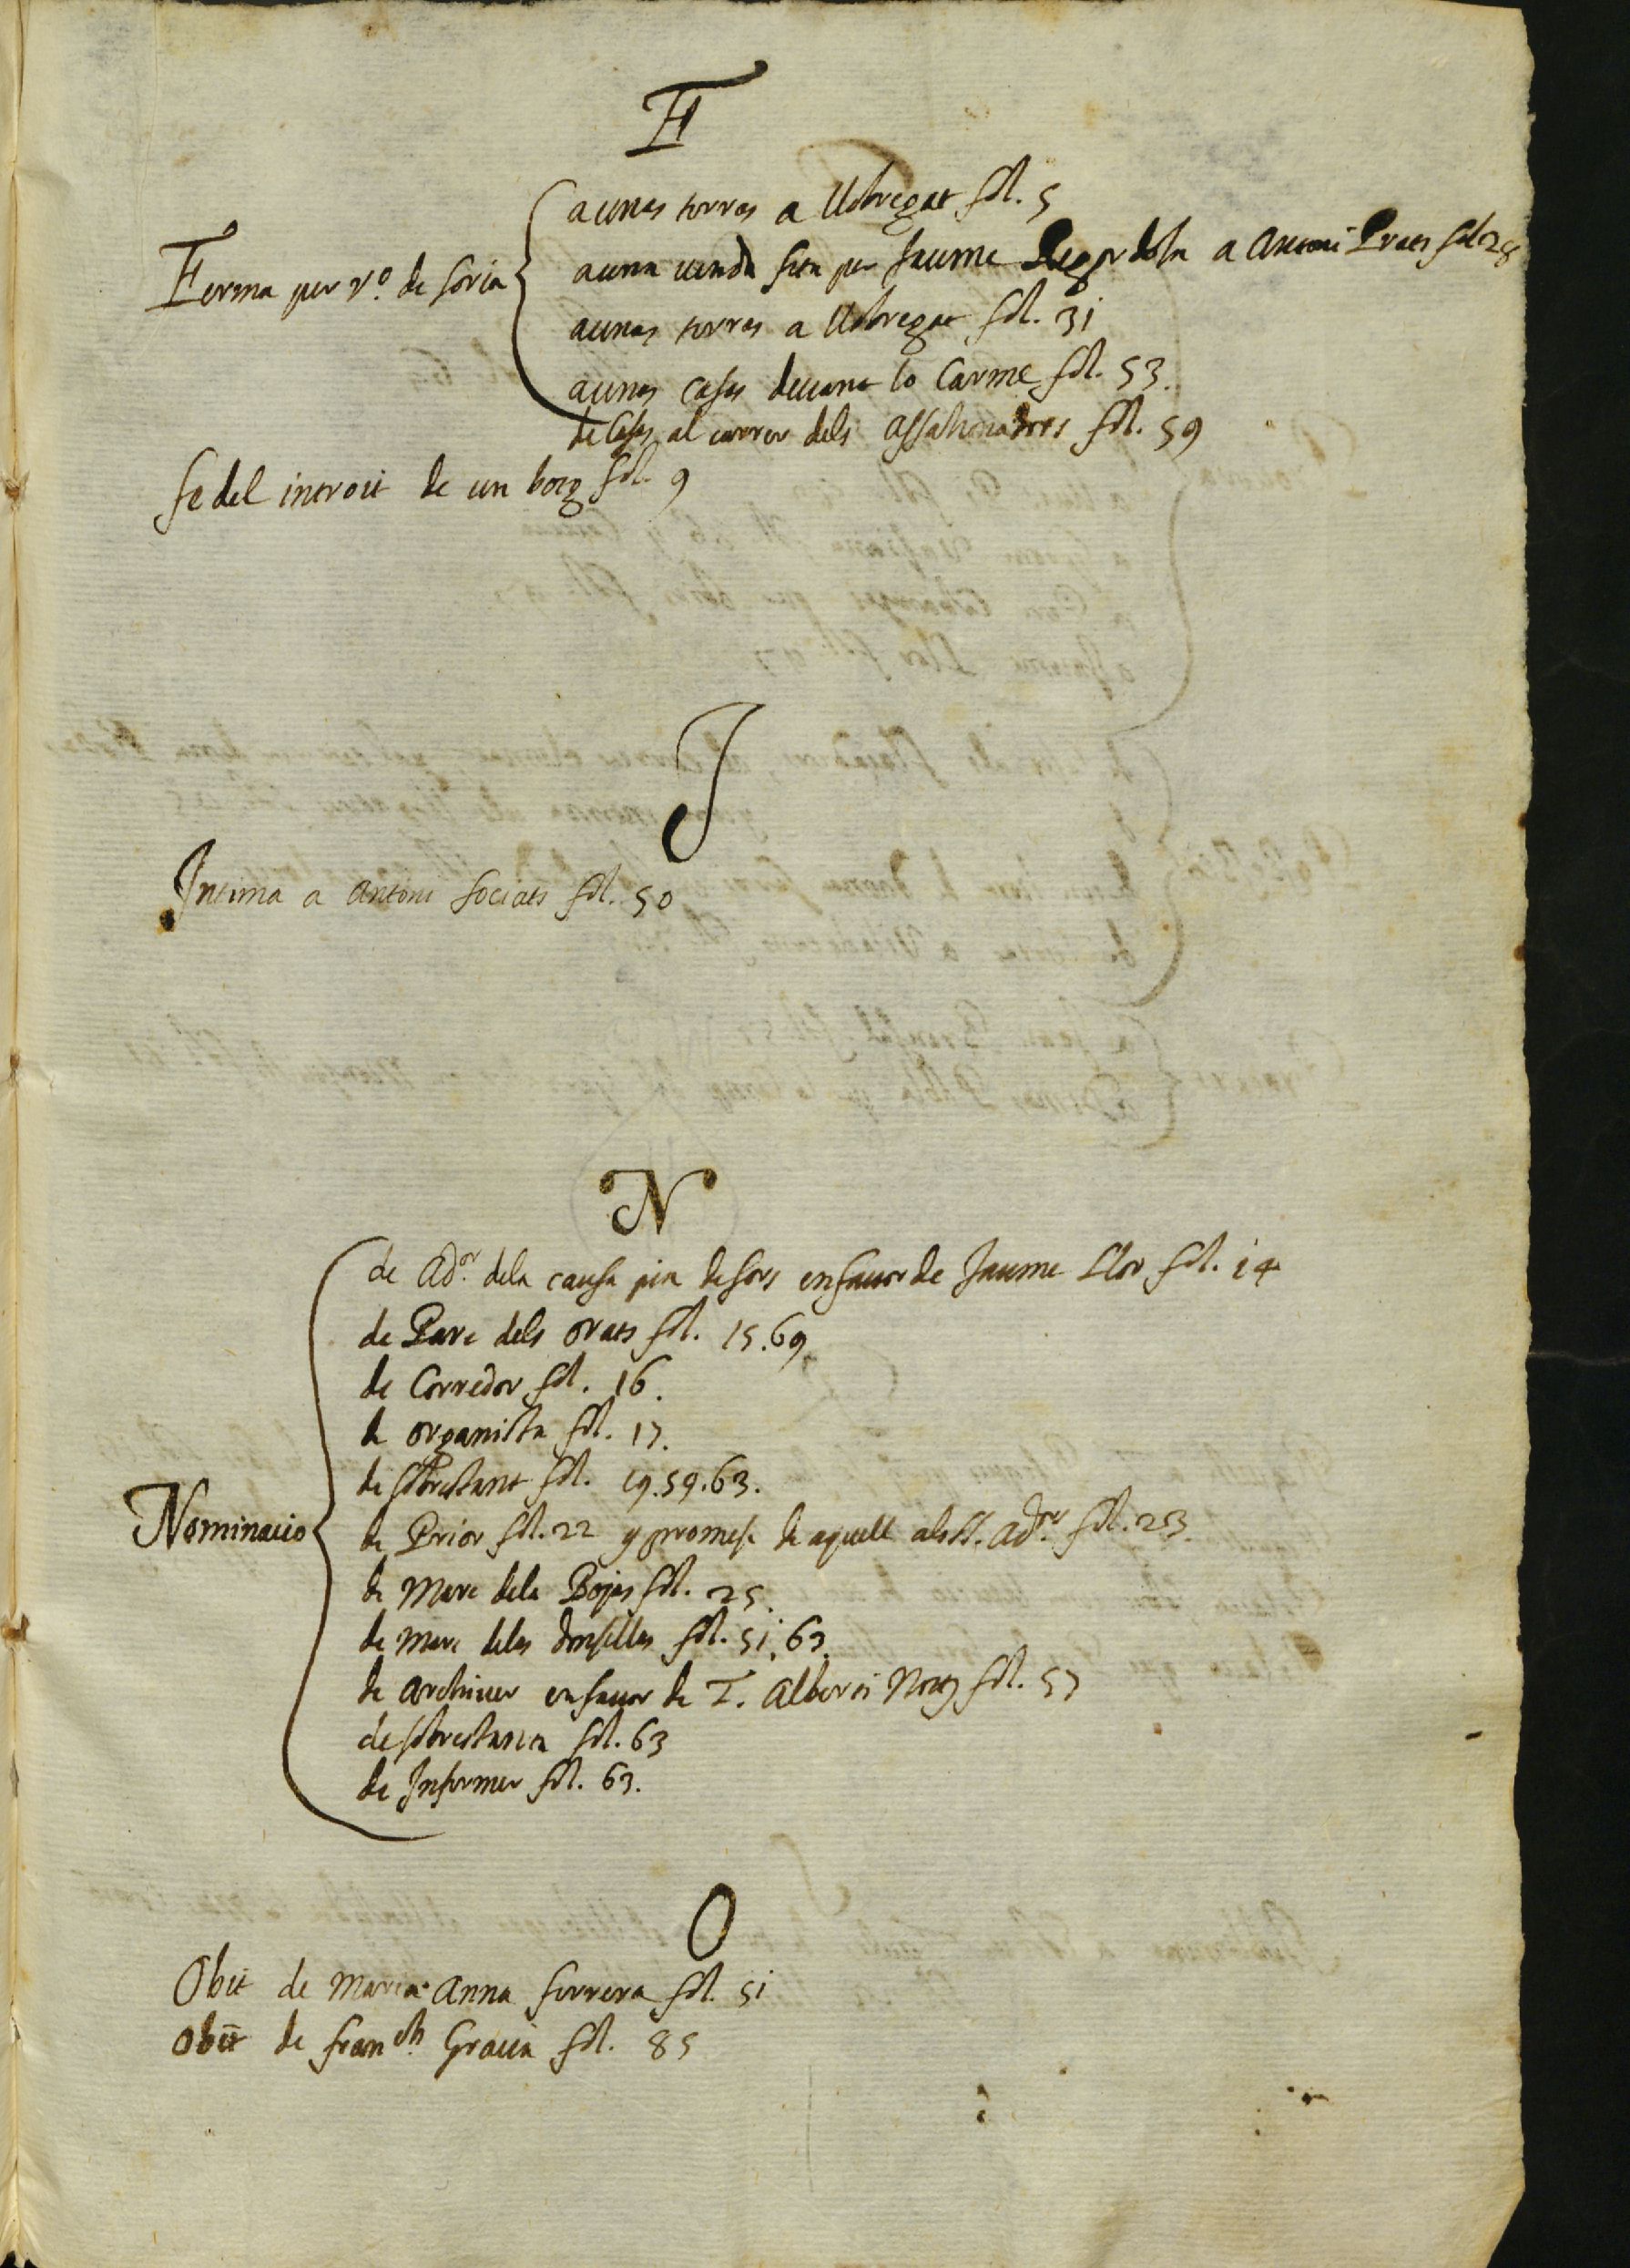 F
Ferma per rº. de soria
a unas terras a Llobregat fol. 5
a una venda feta per Jaume Regordosa a Antoni Prats fol 28
a unas terras a Llobregat fol. 31
a unas casas devant lo Carme fol. 53.
de Casas al carrer dels Assahonadors fol. 59
fe del introit de un boig fol. 9
J
Intima a Antoni Sociats fol. 50
N
Nominacio
de Ad.or dela causa pia de fors en favor de Jaume Llor fol. 14
de Pare dels orats fol. 15.69
de Corredor fol. 16.
de organista fol. 17.
de sobrestant fol. 19.59.63.
de Prior fol. 22 y promesa de aquell als SS. Ad.rs fol. 23.
de Mare dela Bojas fol. 25.
de mare delas donsellas fol. 51.63.
de Archiver en favor de T. Alberti Notj fol. 57
de sobrestanta fol. 63
de Infermer fol. 63.
O
Obit de Maria Anna ferrera fol. 51
Obit de fran.ch Gracia fol. 85